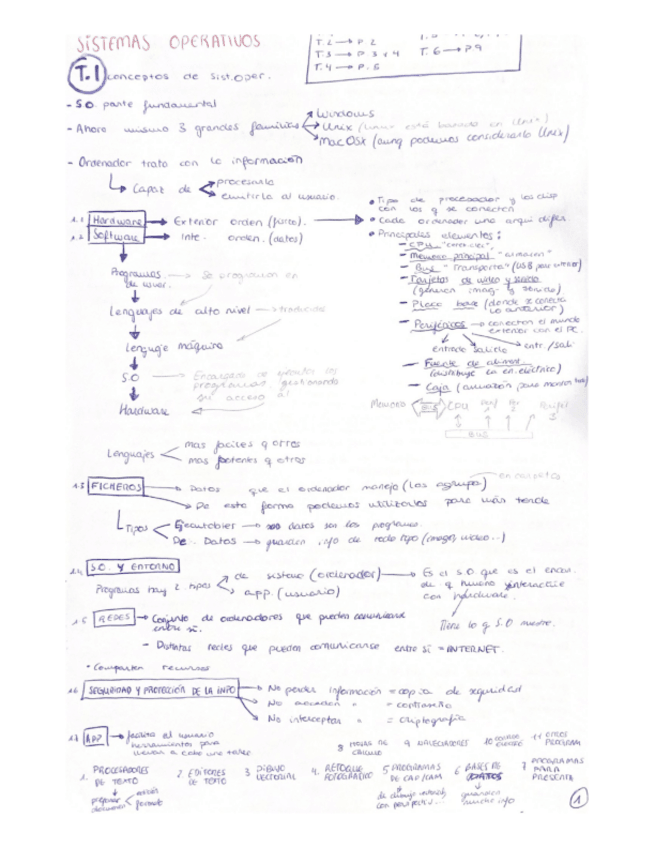 SISTEMAS OPERATIVOS
T.2 → P 2
T.3 → P 3 y 4
T.4 → P. 5
T. 6 → P.9
T.1 conceptos de sist. oper.
- SO parte fundamental
- Ahora mismo 3 grandes familias
Windows
Unix (Linux está basado en Unix)
Mac OSX (aunq podemos considerarlo Unix)
- Ordenador trata con la información
Capaz de
procesarla
emitirla al usuario.
1.1 Hardware → Exterior orden (físico).
1.2 Software → Inte. orden. (datos)
• Tipo de procesador y los disp con los q se conectan
• Cada ordenador una arqui difer.
• Principales elementos:
- CPU
- Memoria principal "almacen"
- Bus "Transporta" (USB
- Tarjetas de video y sonido
(generan imag. y sonido)
- Placa base (donde se conecta
lo anterior)
- Periféricos → conectan el mundo
exterior con el PC.
entrada salida entr./sali.
- Fuente de aliment.
(distribuye la en. eléctrica)
- Caja (armazón para montar
Programas → Se programan en
de usuar.
Lenguajes de alto nivel → traductor
Lenguaje máquina
S.O → Encargado de ejecutar los
programas, gestionando
su acceso al
Hardware
Memoria CPU
BUS
Lenguajes
mas faciles q otros
mas potentes q otros
1.3 FICHEROS → Datos que el ordenador maneja (los agrupa) en carpetas
→ De esta forma podemos utilizarlos para más tarde
Tipos
Ejecutables → datos son los programas.
De Datos → guardan info de todo tipo (images, video...)
1.4 S.O. Y ENTORNO
Programas hay 2 tipos
de sistema (ordenador) → Es el S.O que es el encar.
de q nuestro interactúe
con hardware.
app. (usuario)
Tiene lo q S.O muestre.
1.5 REDES → Conjunto de ordenadores que pueden comunicarse
entre si.
- Distintas redes que pueden comunicarse entre sí = INTERNET.
• Comparten recursos
1.6 SEGURIDAD Y PROTECCIÓN DE LA INFO
→ No perder información = copia de seguridad
→ No accedan " = contraseña
→ No interceptar " = criptografía
1.7 APP → facilita al usuario
herramientas para
llevar a cabo una tarea
8 HOJAS DE
CÁLCULO
9 NAVEGADORES
11 OTROS
PROGRAM
1. PROCESADORES
DE TEXTO
2 EDITORES
DE TEXTO
3 DIBUJO
VECTORIAL
4. RETOQUE
FOTOGRÁFICO
5 PROGRAMAS
DE CAD/CAM
6 BASES DE
DATOS
7 PROGRAMAS
PARA
PRESENTA
preparar
documen
formato
de dibujo
con perspectiv...
guardan
mucha info
1